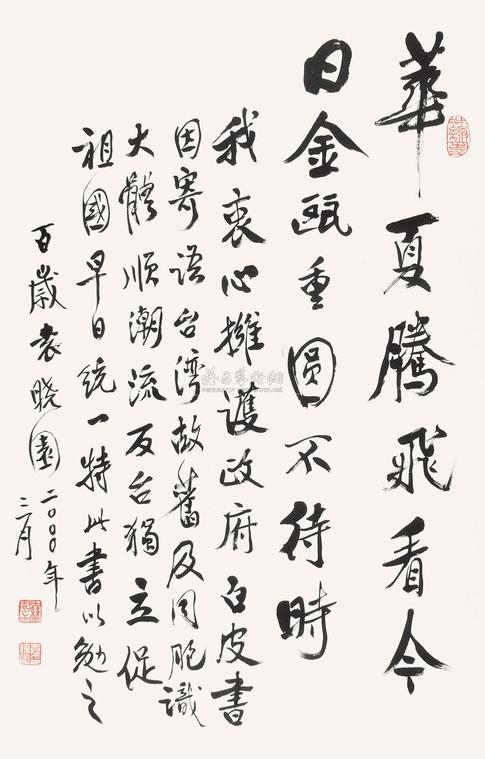 華夏騰飛看今
日金甌重圓不待時
我衷心擁護政府白皮書
因寄語台灣故舊及同胞識
大體順潮流反台獨立促
祖國早日統一特此書以勉之
百歲袁晓園二〇〇〇年
三月